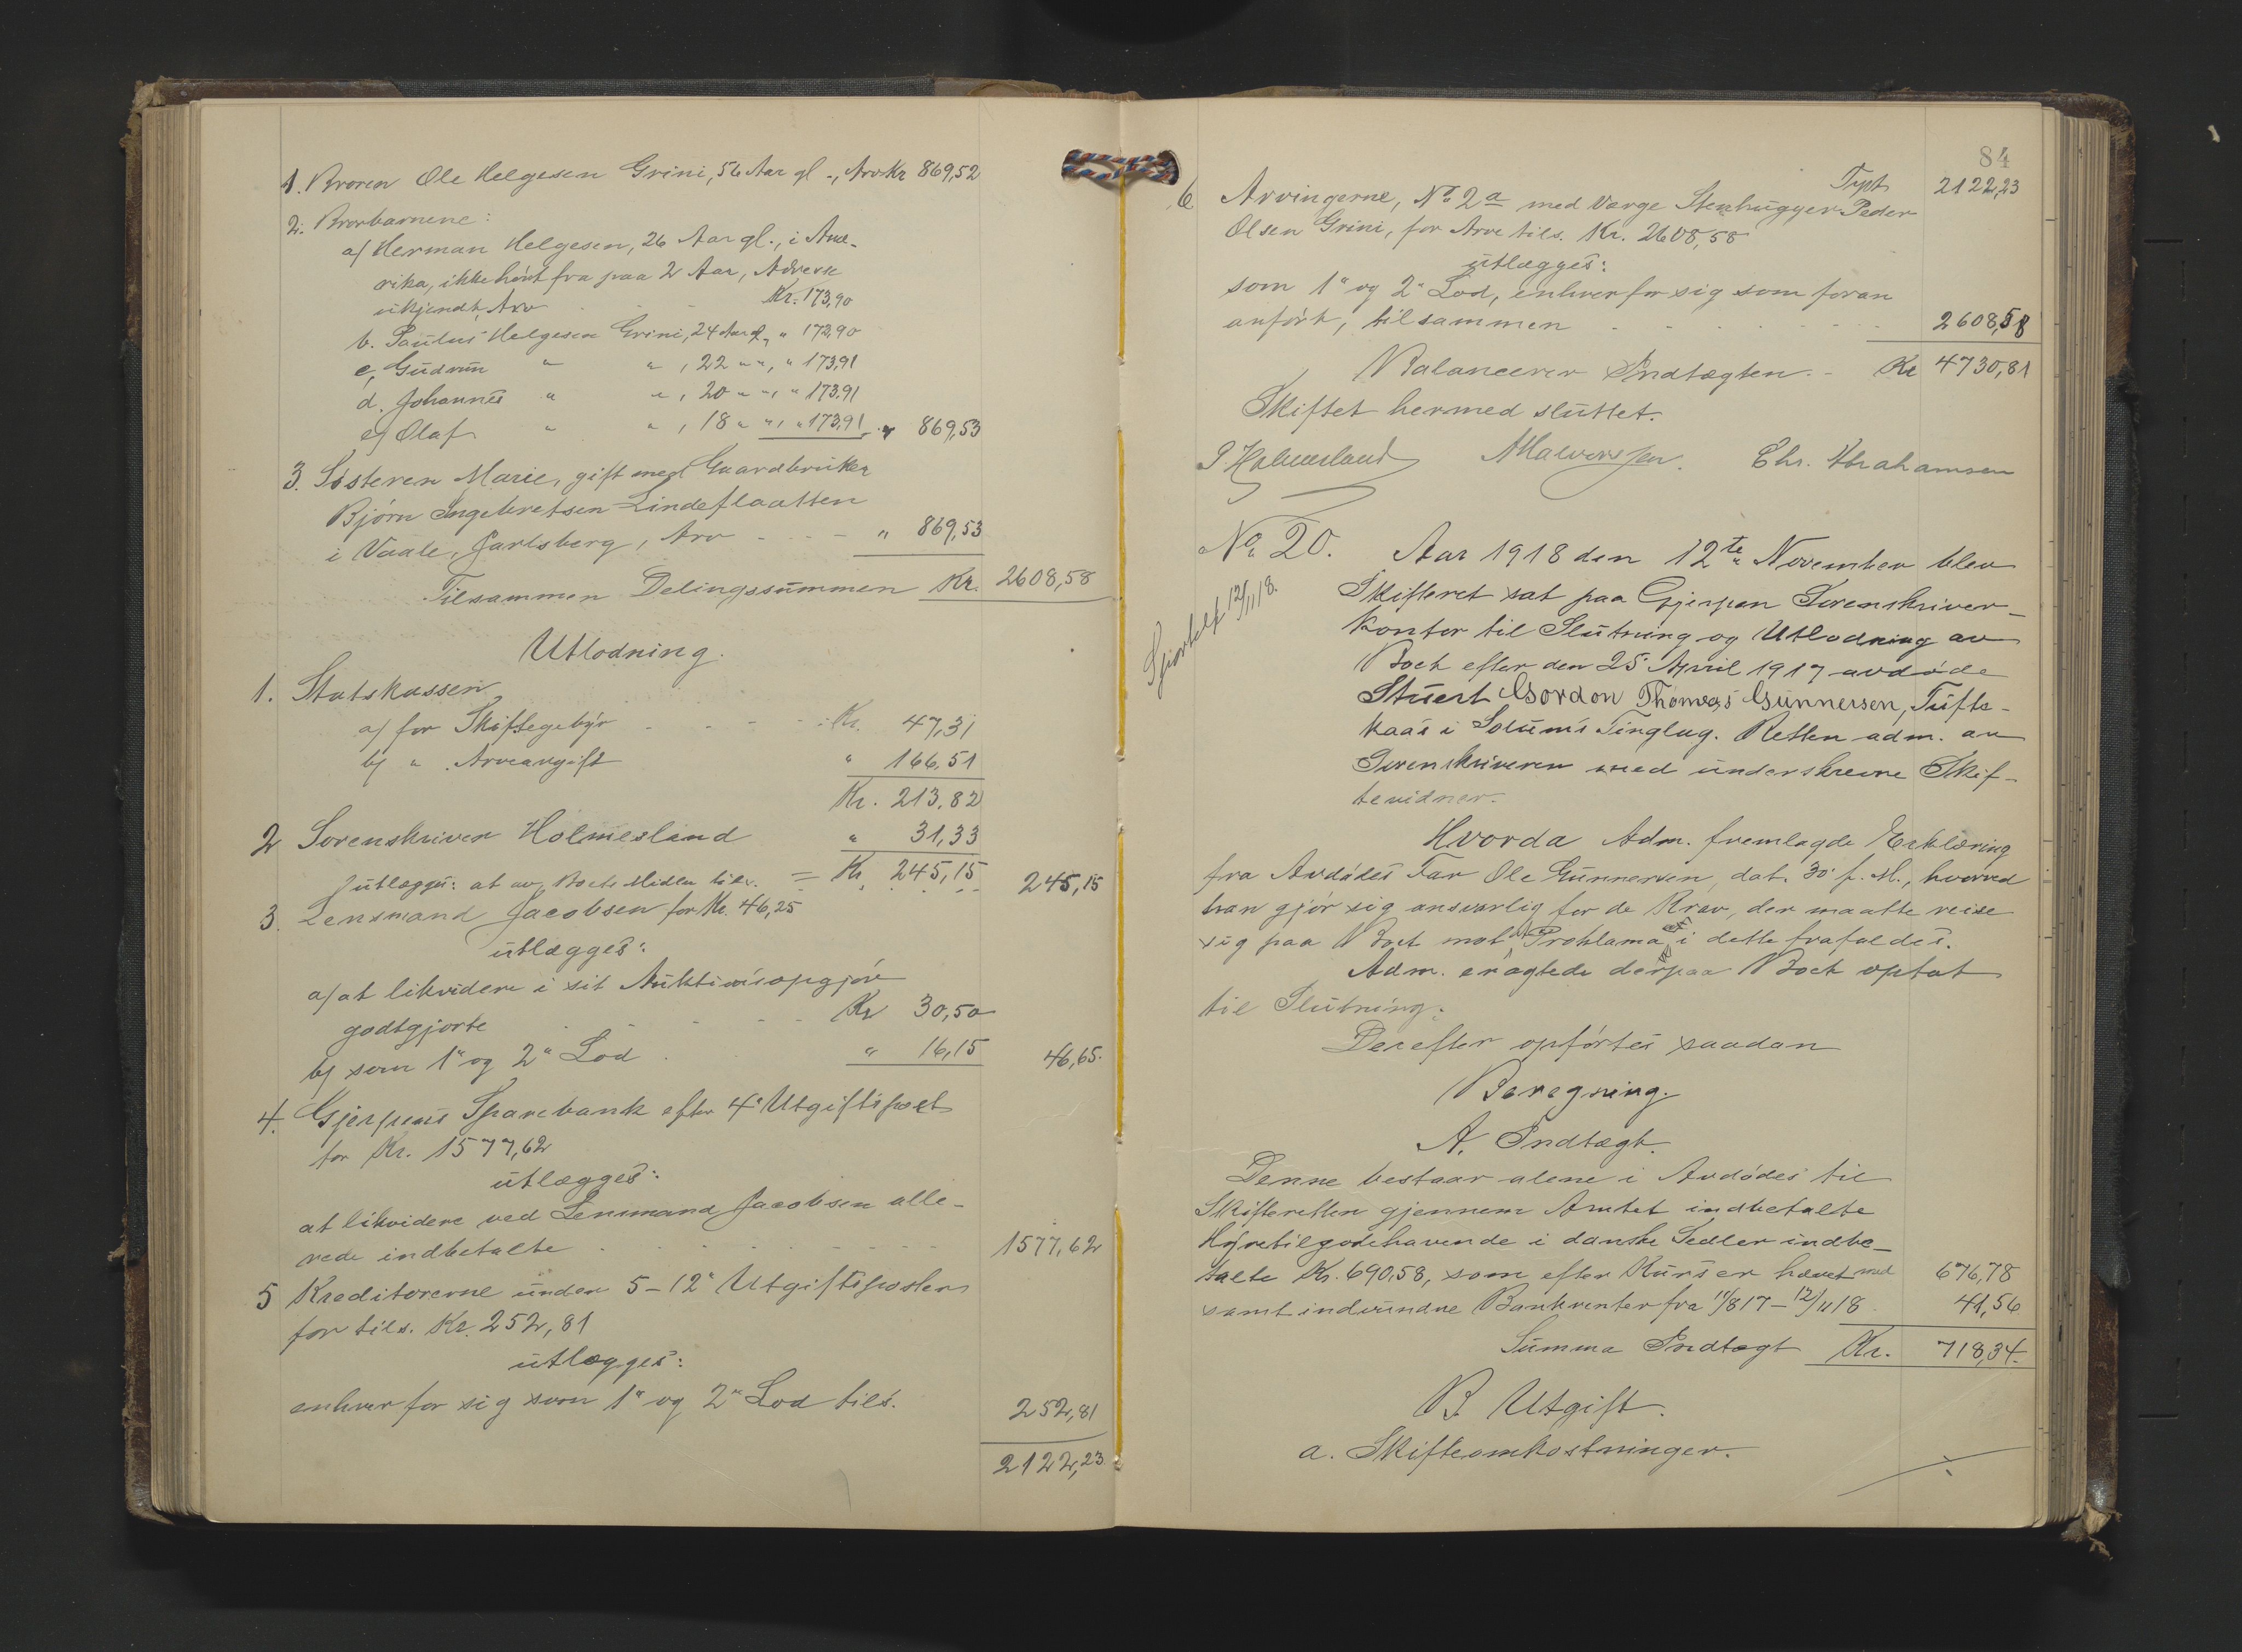 1. Broren Ole Helgesen Grini, 56 Aar gl., Arv Kr 869,52
2. Brorbarnene:
a/ Herman Helgesen, 26 Aar gl., i Ame-
rika, ikke hørt fra paa 2 Aar, Adresse
ukjendt, Arv - - Kr. 173,90
b. Paulus Helgesen Grini, 24 Aar gl., " 173,90
c, Gudrun " " , 22 " ", " 173,91
d. Johannes " " , 20 " ", " 173,91
e/ Olaf " " , 18 " ", " 173,91 " 869,53
3. Søsteren Marie, gift med Gaardbruker
Bjørn Ingebretsen Lindeflaatten
i Vaale, Jarlsberg, Arv - - - " 869,53
Tilsammen Delingssummen Kr. 2608,58
Utlodning.
1. Statskassen
a/ for Skiftegebyr - - - - Kr. 47,31
b/ " Arveavgift " 166,51
Kr. 213,82
2 Sorenskriver Holmesland " 31,33
utlægges: at av Boets Midler tilsv. = Kr. 245,15 245,15
3. Lensmand Jacobsen for Kr. 46,25
utlægges:
a/ at likvidere i sit Auktionsopgjør
godtgjorte - - - Kr 30,50
b/ som 1" og 2" Lod . " 16,15 46,65.
4. Gjerpens Sparebank efter 4" Utgiftspost
for Kr. 1577,62
utlægges:
at likvidere ved Lensmand Jacobsen alle-
rede indbetalte - - - - - - 1577,62
5 Kreditorerne under 5-12" Utgiftsposter
for tils. Kr. 252,81
utlægges:
enhver for sig som 1" og 2" Lod tils. 252,81
2122,23
84
Tpst 2122,23
6 Arvingerne, No 2a med Verge Stenhugger Peder
Olsen Grini, for Arv tils. Kr. 2608,58
utlægges:
som 1" og 2" Lod, enhver for sig som foran
anført, tilsammen - - - - - 2608,58
Balancerer Indtægten - Kr 4730,81
Skiftet hermed sluttet.
P Holmesland A Halvorsen. Chr. Abrahamsen
No. 20. Aar 1918 den 12te November blev
Skifteret sat paa Gjerpen Sorenskriver-
kontor til Slutning og Utlodning av
Boet efter den 25' April 1917 avdøde
Stuert Gordon Thomas Gunnersen, Tufte-
kaas i Solums Tinglag. Retten adm. av
Sorenskriveren med underskrevne Skif-
tevidner.
12/11 18.
Hvorda Adm. fremlagde Erklæring
fra Avdødes Far Ole Gunnersen, dat. 30' f. M., hvorved
han gjør sig ansvarlig for de Krav, der maatte reise
sig paa Boet mot at Proklama i dette frafaldes.
Adm. eragtede derpaa Boet optat
til Slutning.
Derefter opførtes saadan
Beregning.
A. Indtægt.
Denne bestaar alene i Avdødes til
Skifteretten gjennem Amtet indbetalte
Hyretilgodehavende i danske Sedler indbe-
talte Kr. 690,58, som efter Kurs er hævet med 676,78
samt indvundne Bankrenter fra 11/8 17 - 12/11 18 41,56
Summa Indtægt Kr. 718,34.
B. Utgift.
a. Skifteomkostninger.